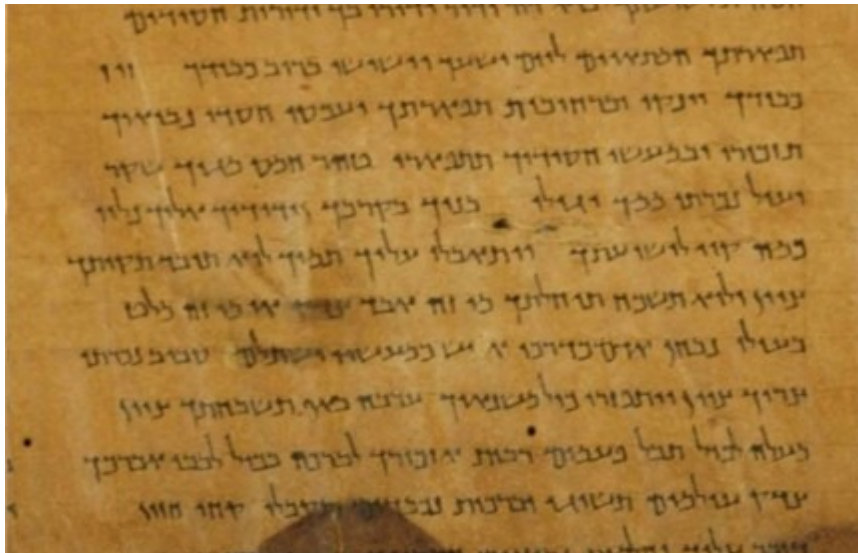 ודור ידורו בך ודורות חסידים
תפארתך המתאוים ליום ישעך וישישו ברוב כבודך זיז
כבודך יינקו וברחובות תפארתך יעכסו חסדי נביאיך
תזכורי ובמעשי חסידיך תתפארי טהר חמס מגוך שקר
ועול נכרתו ממך יגילו בניך בקרבך וידידיך אליך נלוו
כמה קוו לישועתך ויתאבלו עליך תמיך לוא תובד תקותך
ציון ולוא תשכח תוחלתך מי זה אבד צדק או מי זה מלט
בעולו נבחן אדם כדרכו איש כמעשיו ישתלם סביב נכרתו
צריך ציון ויתפזרו כול משנאיך ערבה באף תשבחתך ציון
מעלה לכול תבל פעמים רבות אזכורך לברכה בכול לבבי אברכך
צדק עולמים תשיגי וברכות נכבדים תקבלי קחי חזון